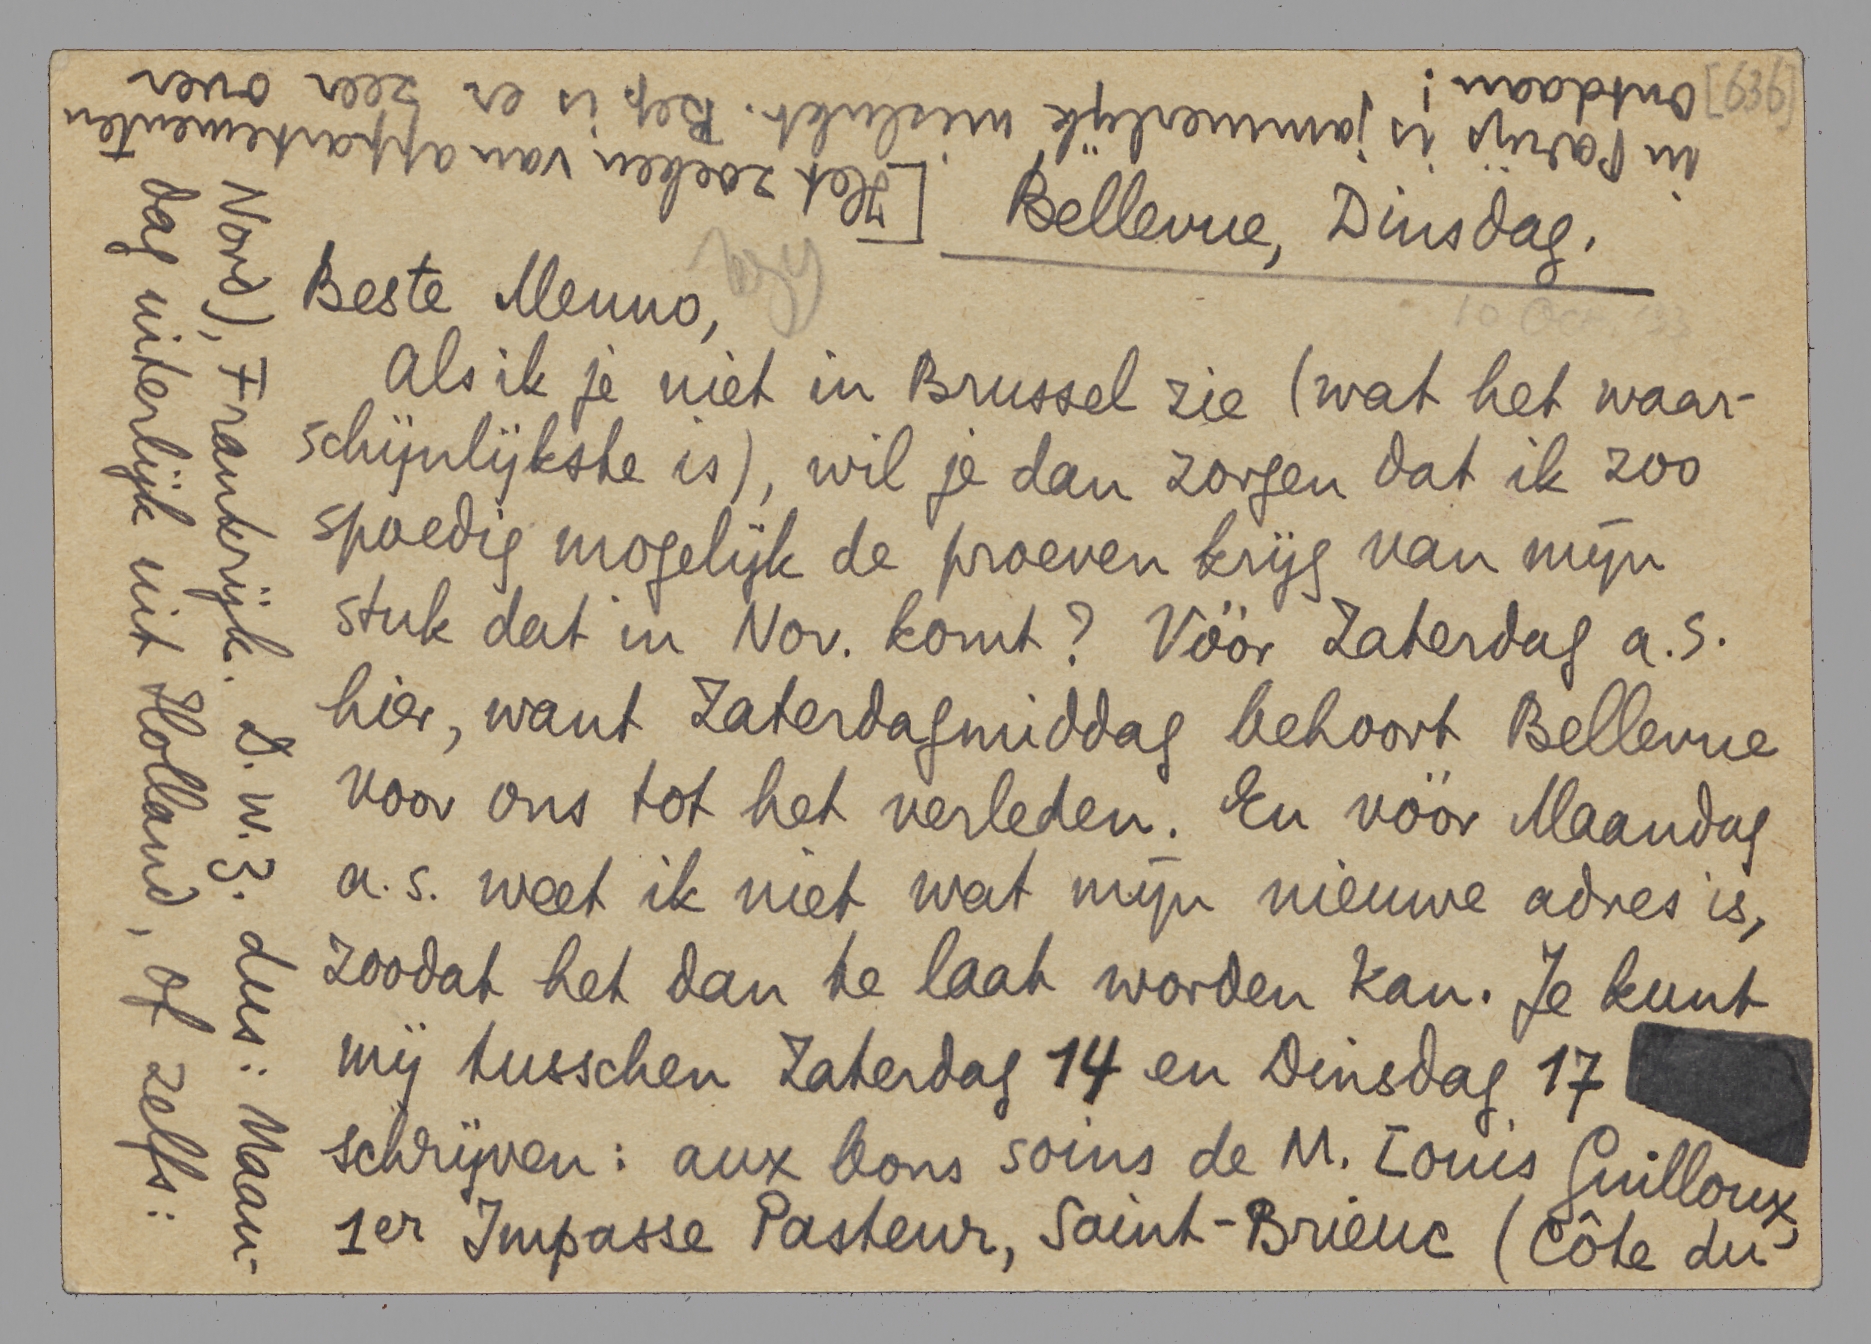 [636]
Bellevue, Dinsdag.
10 Oct. '33
Beste Menno,
Als ik je niet in Brussel zie (wat het waar-
schijnlijkste is), wil je dan zorgen dat ik zoo
spoedig mogelijk de proeven krijg van mijn
stuk dat in Nov. komt? Vóór Zaterdag a.s.
hier, want Zaterdagmiddag behoort Bellevue
voor ons tot het verleden. En vóór Maandag
a.s. weet ik niet wat mijn nieuwe adres is,
zoodat het dan te laat worden kan. Je kunt
mij tusschen Zaterdag 14 en Dinsdag 17
schrijven: aux bons soins de M. Louis Guilloux,
1er Impasse Pasteur, Saint-Brieuc (Côte du
Nord), Frankrijk. D.w.z. dus: Maan-
dag uiterlijk uit Holland, of zelfs:
[Het zoeken van appartementen
in Parijs is jammerlijk mislukt. Bep is er zeer over
ontdaan!